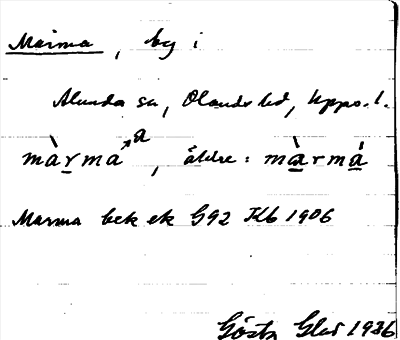 Marma, by i
Alunda sn, Olands hd, Upps. l.
màrmaᵃ, äldre: màrmá
Marma bek ek G92 Kb 1906
Gösta 1936